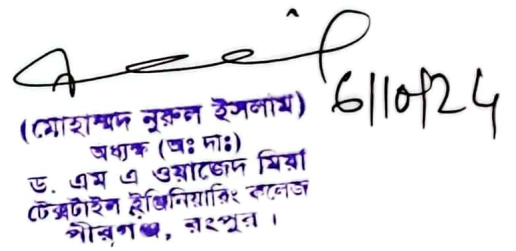 6/10/24
(মোহাম্মদ নূরুল ইসলাম)
অধ্যক্ষ (অঃ দাঃ)
ড. এম এ ওয়াজেদ মিয়া
টেক্সটাইল ইঞ্জিনিয়ারিং কলেজ
পীরগঞ্জ, রংপুর।